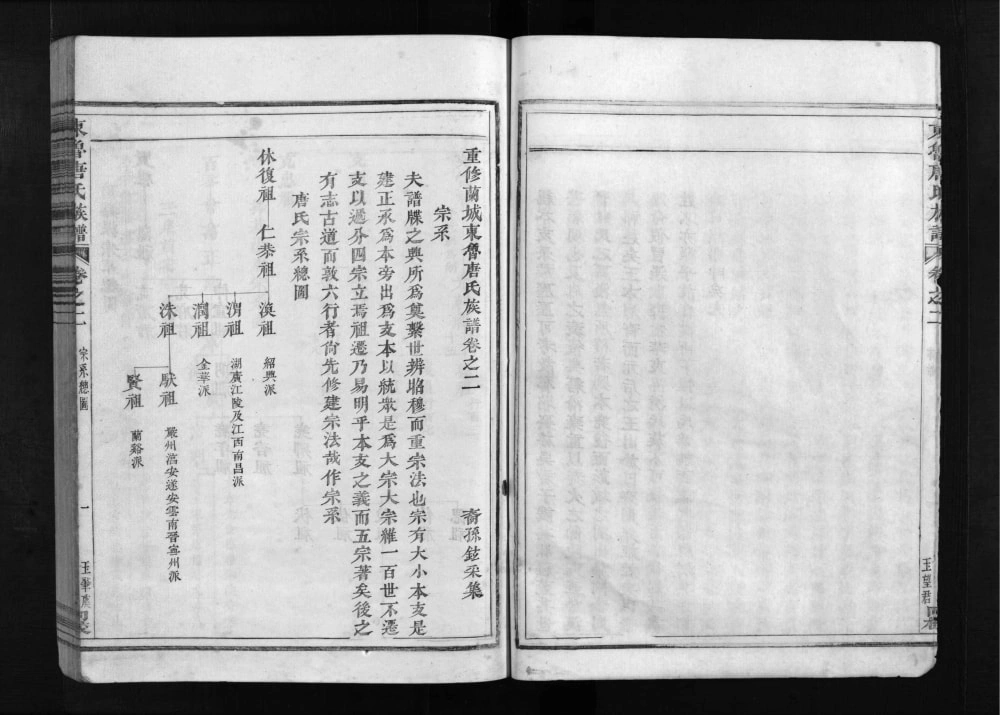 東魯唐氏族譜
卷之二
重修蘭城東魯唐氏族譜卷之二
宗系
裔孫鉉采集
夫譜牒之興所爲奠繫世辨昭穆而重宗法也宗有大小本支是
建正承爲本旁出爲支本以統衆是爲大宗大宗維一百世不遷
支以遞分四宗立焉祖遷乃易明乎本支之義而五宗著矣後之
有志古道而敦六行者尙先修建宗法哉作宗系
唐氏宗系總圖
休復祖
仁恭祖
滇祖
紹興派
渭祖
湖廣江陵及江西南昌派
潤祖
金華派
洙祖
猷祖
嚴州淳安遂安雲南晉寧州派
賢祖
蘭谿派
東魯唐氏族譜
卷之二
宗系總圖
一